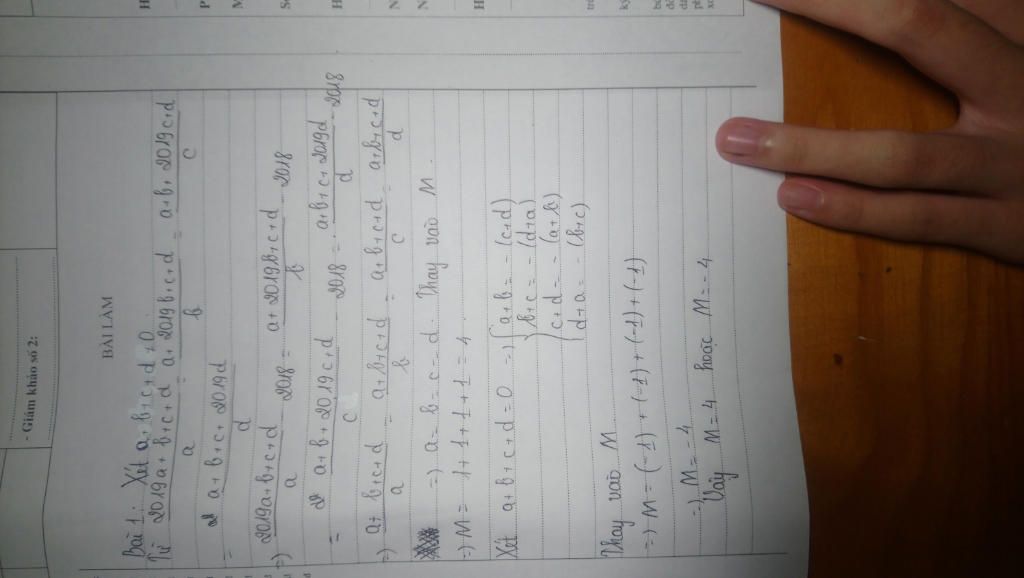 - Giám khảo số 2:
BÀI LÀM
Bài 1: Xét a+b+c+d≠0.
Từ 2019a+b+c+d/a = a+2019b+c+d/b = a+b+2019c+d/c
= a+b+c+2019d/d
=) 2019a+b+c+d/a - 2018 = a+2019b+c+d/b - 2018
= a+b+2019c+d/c - 2018 = a+b+c+2019d/d - 2018
=) a+b+c+d/a = a+b+c+d/b = a+b+c+d/c = a+b+c+d/d
=) a=b=c=d. Thay vào M.
=) M = 1+1+1+1=4.
Xét a+b+c+d=0 =) { a+b = -(c+d)
b+c = -(d+a)
c+d = -(a+b)
d+a = -(b+c)
Thay vào M
=) M = (-1)+(-1)+(-1)+(-1)
=) M=-4
Vậy M=4 hoặc M=-4